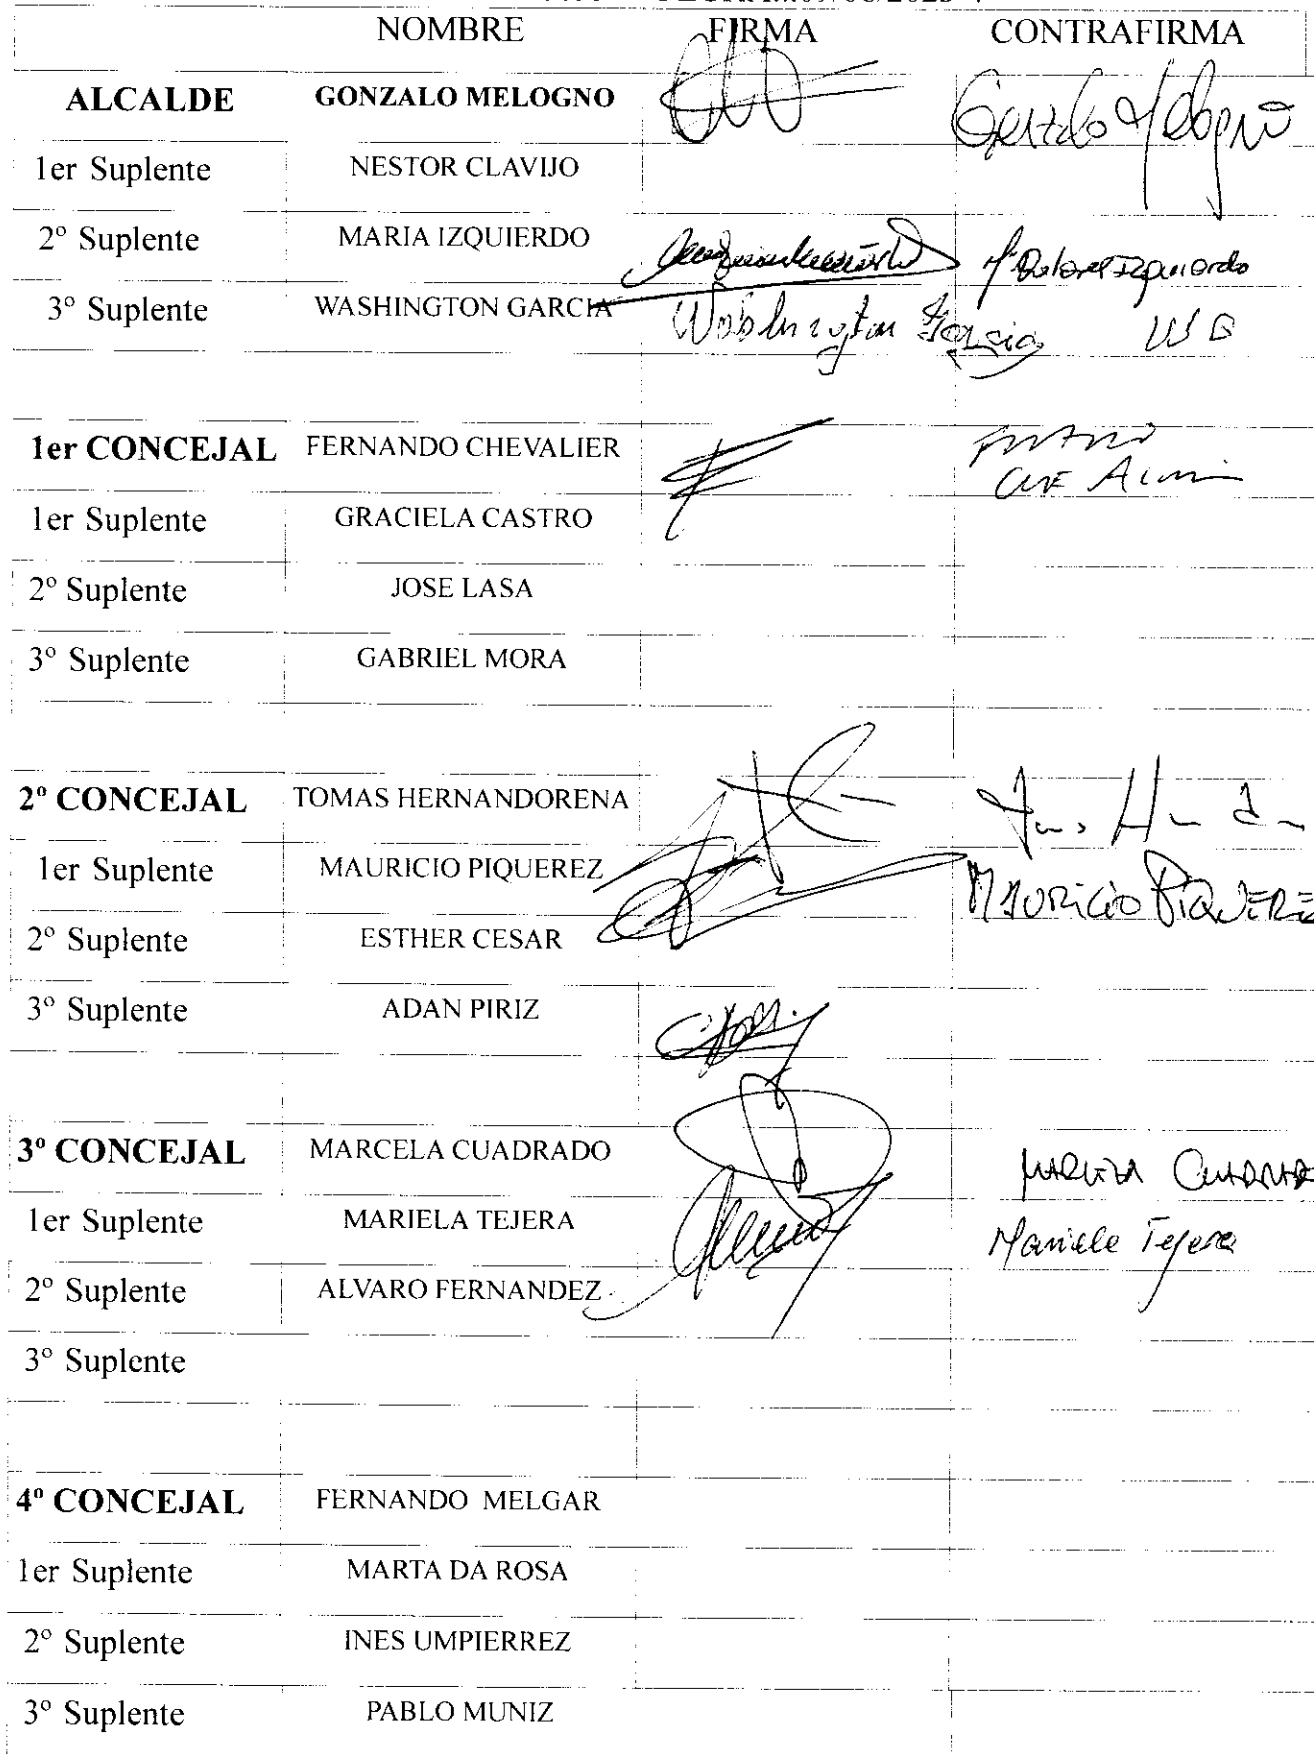 NOMBRE FIRMA CONTRAFIRMA
ALCALDE GONZALO MELOGNO Gonzalo Melogno
1er Suplente NESTOR CLAVIJO
2º Suplente MARIA IZQUIERDO Mª Dolores Izquierdo
3º Suplente WASHINGTON GARCIA Washington Garcia W G
1er CONCEJAL FERNANDO CHEVALIER
1er Suplente GRACIELA CASTRO
2º Suplente JOSE LASA
3º Suplente GABRIEL MORA
2º CONCEJAL TOMAS HERNANDORENA
1er Suplente MAURICIO PIQUEREZ MAURICIO PIQUEREZ
2º Suplente ESTHER CESAR
3º Suplente ADAN PIRIZ
3º CONCEJAL MARCELA CUADRADO
1er Suplente MARIELA TEJERA Mariela Tejera
2º Suplente ALVARO FERNANDEZ
3º Suplente
4º CONCEJAL FERNANDO MELGAR
1er Suplente MARTA DA ROSA
2º Suplente INES UMPIERREZ
3º Suplente PABLO MUNIZ